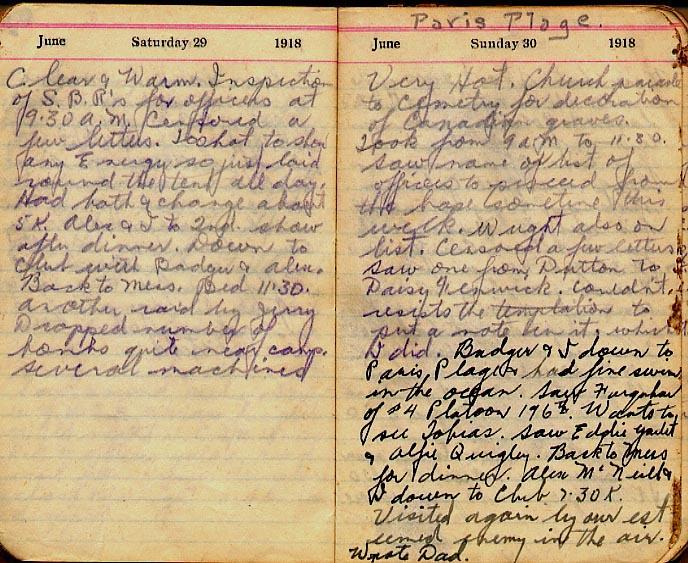 June Saturday 29 1918
Clear & Warm. Inspection
of S.B.R's for officers at
9.30 a.m. Censored a
few letters. Too hot to show
any Energy so just laid
round the tent all day.
Had bath & change about
5 K. Alex & I to 2nd. show
after dinner. Down to
Club with Badger & Alex.
Back to Mess. Bed 11.30.
another raid by Jerry
Dropped number of
bombs quite near camp.
several machines
Paris Plage.
June Sunday 30 1918
Very Hot. Church parade
to Cemetry for decoration
of Canadian graves.
Took from 9 a.m. to 11.30.
Saw name on list of
officers to proceed from
the base sometime this
week. Wright also on
list. Censored a few letters
Saw one from Dutton to
Daisy Fenwick. Couldn't
resists the temptation to
put a note in it, which
I did. Badger & I down to
Paris Plage & had fine swim
in the ocean. Saw Farquhar
of #4 Platoon 196th. Wants to
see Tobias. Saw Eddie
& Alfie Quigley. Back to Mess
for dinner. Alex McNeill &
I down to Club 7.30 K.
Visited again by our est
eemed enemy in the air.
Wrote Dad.